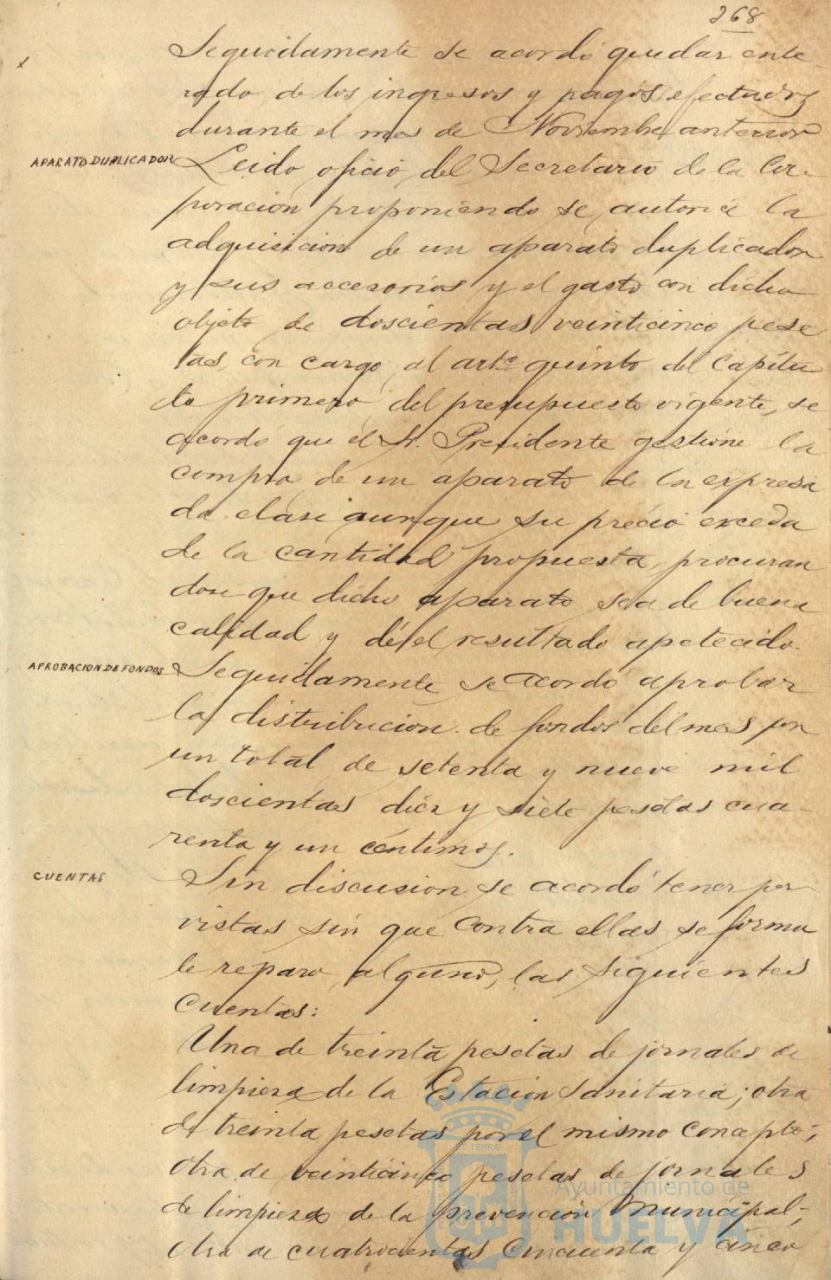 268
Seguidamente se acordó quedar ente-
rado de los ingresos y pagos efectuados
durante el mes de Noviembre anterior
APARATO DUPLICADOR
Leido oficio del Secretario de la Cor-
poracion proponiendo se autorice la
adquisicion de un aparato duplicador
y sus accesorios y el gasto con dicho
objeto de doscientas veinticinco pese
tas, con cargo al artº quinto del Capítu
lo primero del presupuesto vigente, se
acordó que el Sr. Presidente gestione la
compra de un aparato de la expresa
da clase aunque su precio exceda
de la cantidad propuesta, procuran
dose que dicho aparato sea de buena
calidad y dé el resultado apetecido.
APROBACION DE FONDOS
Seguidamente se acordó aprobar
la distribucion de fondos del mes por
un total de setenta y nueve mil
doscientas diez y siete pesetas cua-
renta y un céntimos.
CUENTAS
Sin discusion se acordó tener por
vistas sin que contra ellas se formu
le reparo alguno, las siguientes
cuentas:
Una de treinta pesetas de jornales de
limpieza de la Estacion Sanitaria; otra
de treinta pesetas por el mismo concepto;
otra de veinticinco pesetas de jornales
de limpieza de la prevencion Municipal;
otra de cuatrocientas cincuenta y cinco
Ayuntamiento de
HUELVA